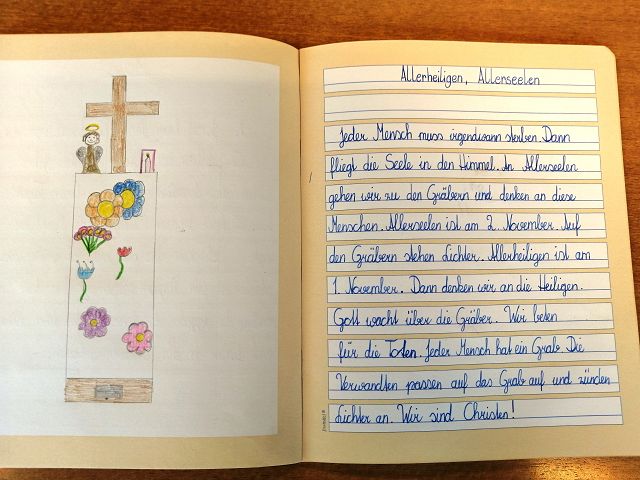 Allerheiligen, Allerseelen
Jeder Mensch muss irgendwann sterben. Dann
fliegt die Seele in den Himmel. An Allerseelen
gehen wir zu den Gräbern und denken an diese
Menschen. Allerseelen ist am 2. November. Auf
den Gräbern stehen Lichter. Allerheiligen ist am
1. November. Dann denken wir an die Heiligen.
Gott wacht über die Gräber. Wir beten
für die Toten. Jeder Mensch hat ein Grab. Die
Verwandten passen auf das Grab auf und zünden
Lichter an. Wir sind Christen!